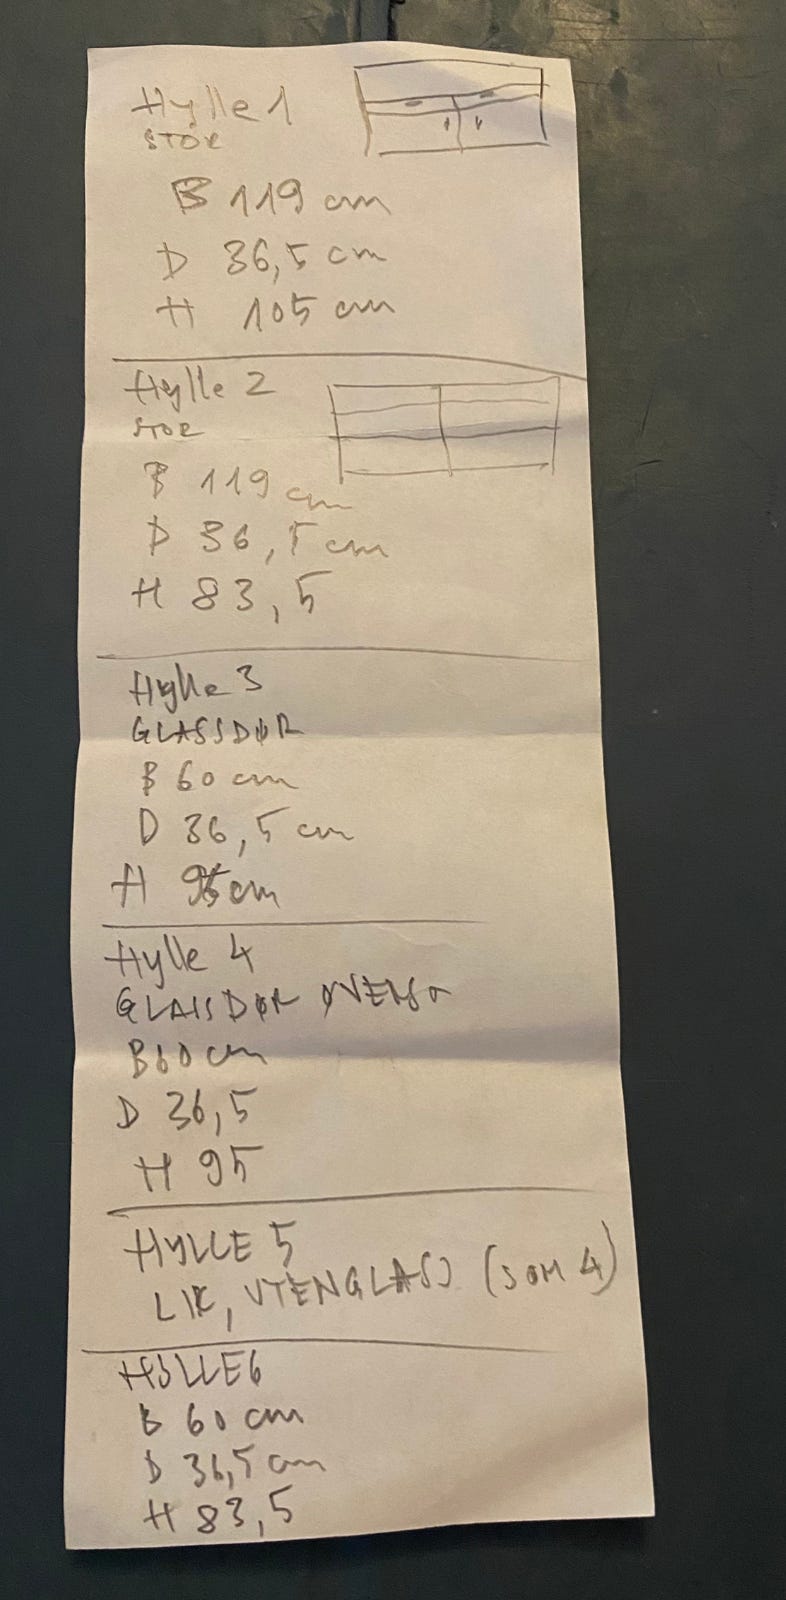 Hylle 1
STOR
B 119 cm
D 36,5 cm
H 105 cm
Hylle 2
STOR
B 119 cm
D 36,5 cm
H 83,5
Hylle 3
GLASSDØR
B 60 cm
D 36,5 cm
H cm
Hylle 4
GLASSDØR ØVERST
B 60 cm
D 36,5
H 95
HYLLE 5
LIK, UTEN GLASS (SOM 4)
HYLLE 6
B 60 cm
D 36,5 cm
H 83,5